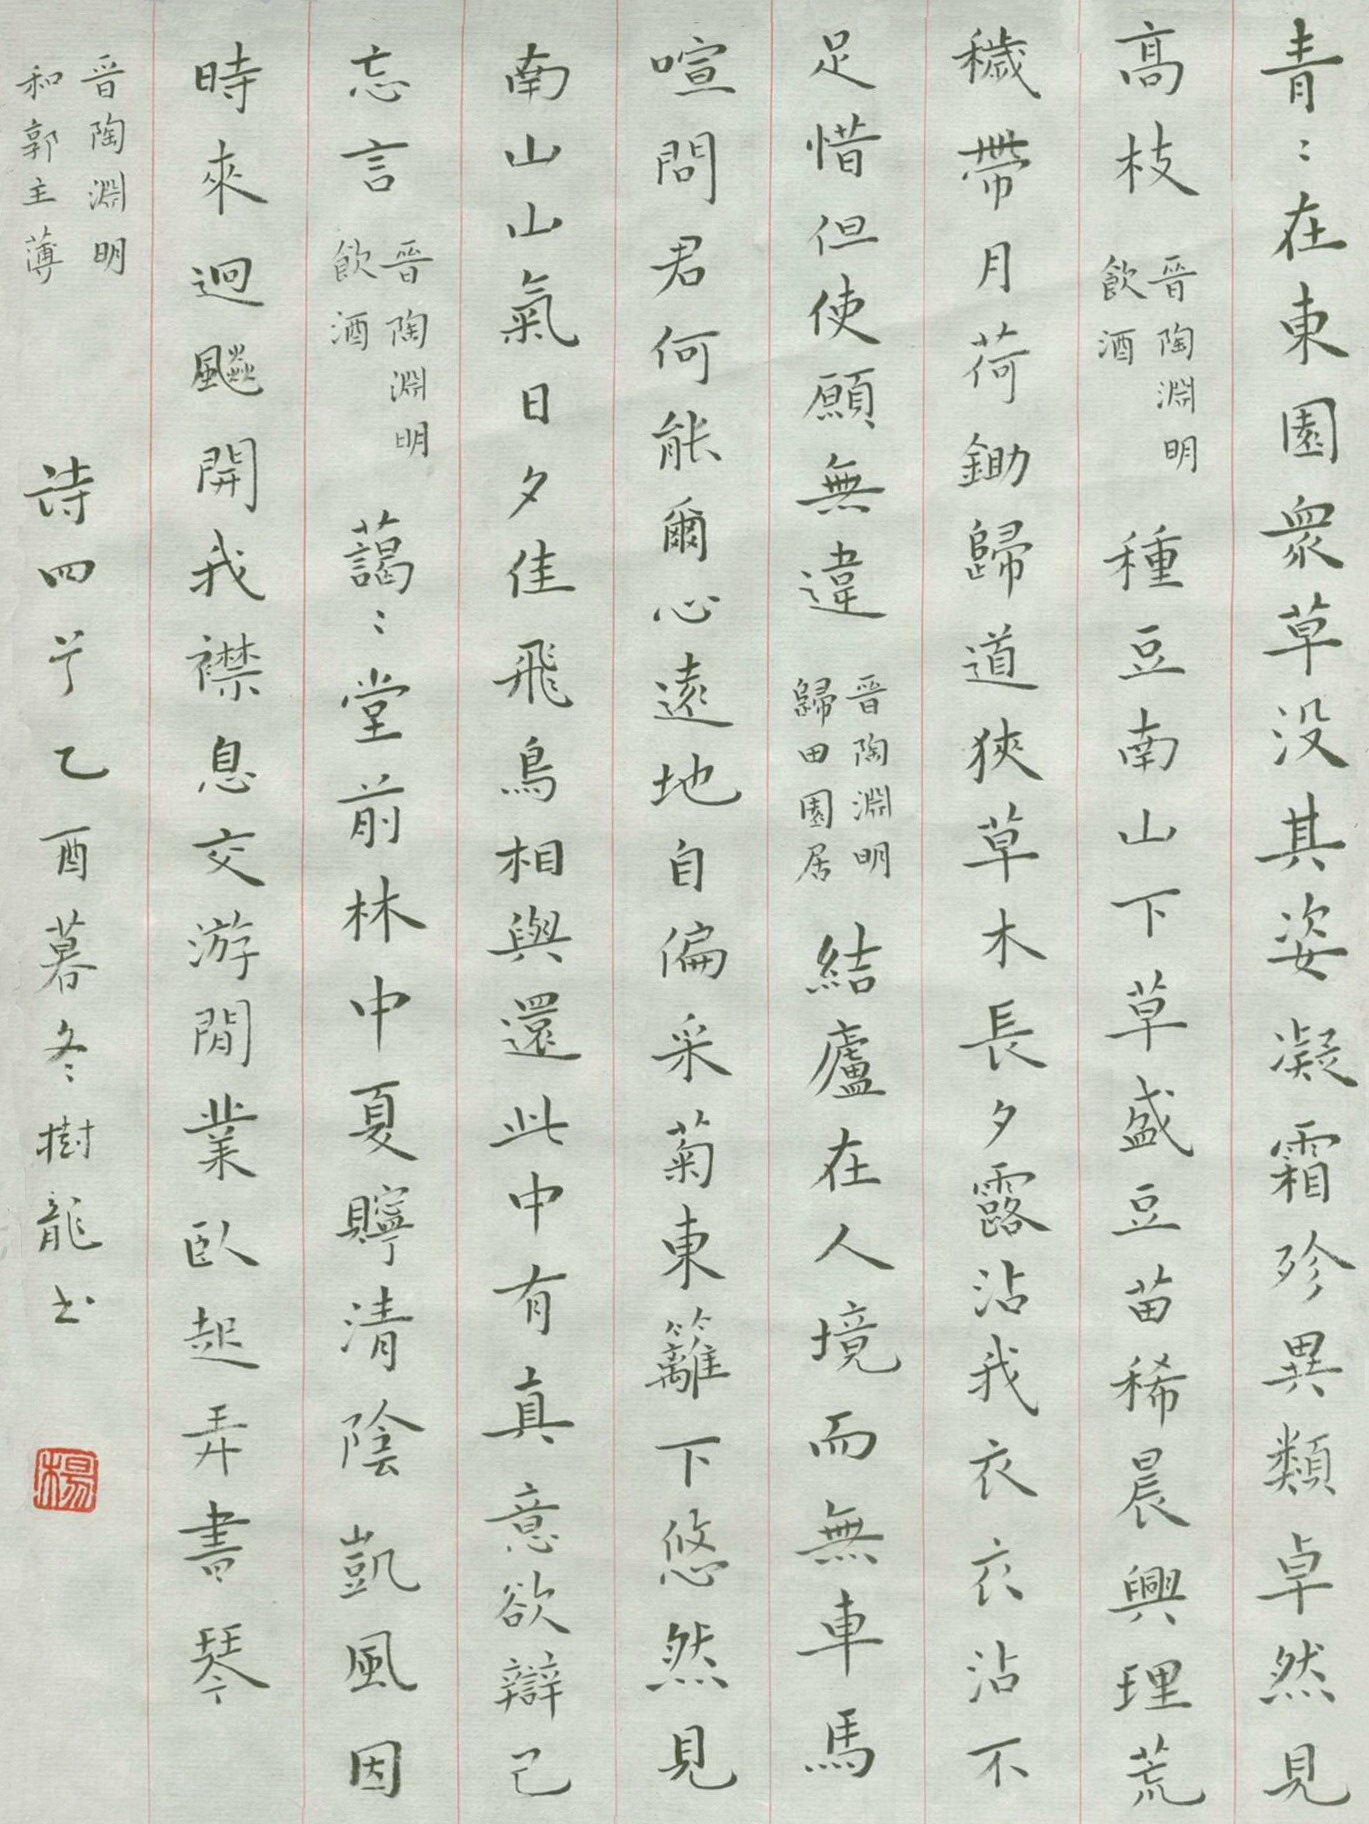 青〻在東園衆草没其姿凝霜殄異類卓然見
高枝 晉陶淵明 飲酒 種豆南山下草盛豆苗稀晨興理荒
穢帶月荷鋤歸道狹草木長夕露沾我衣衣沾不
足惜但使願無違 晉陶淵明 歸田園居 結廬在人境而無車馬
喧問君何能爾心遠地自偏采菊東籬下悠然見
南山山氣日夕佳飛鳥相與還此中有真意欲辯己
忘言 晉陶淵明 飲酒 藹〻堂前林中夏貯清陰凱風因
時來迴飇開我襟息交游閒業臥起弄書琴
晉陶淵明 和郭主薄 詩四首乙酉暮冬樹龍书
楊